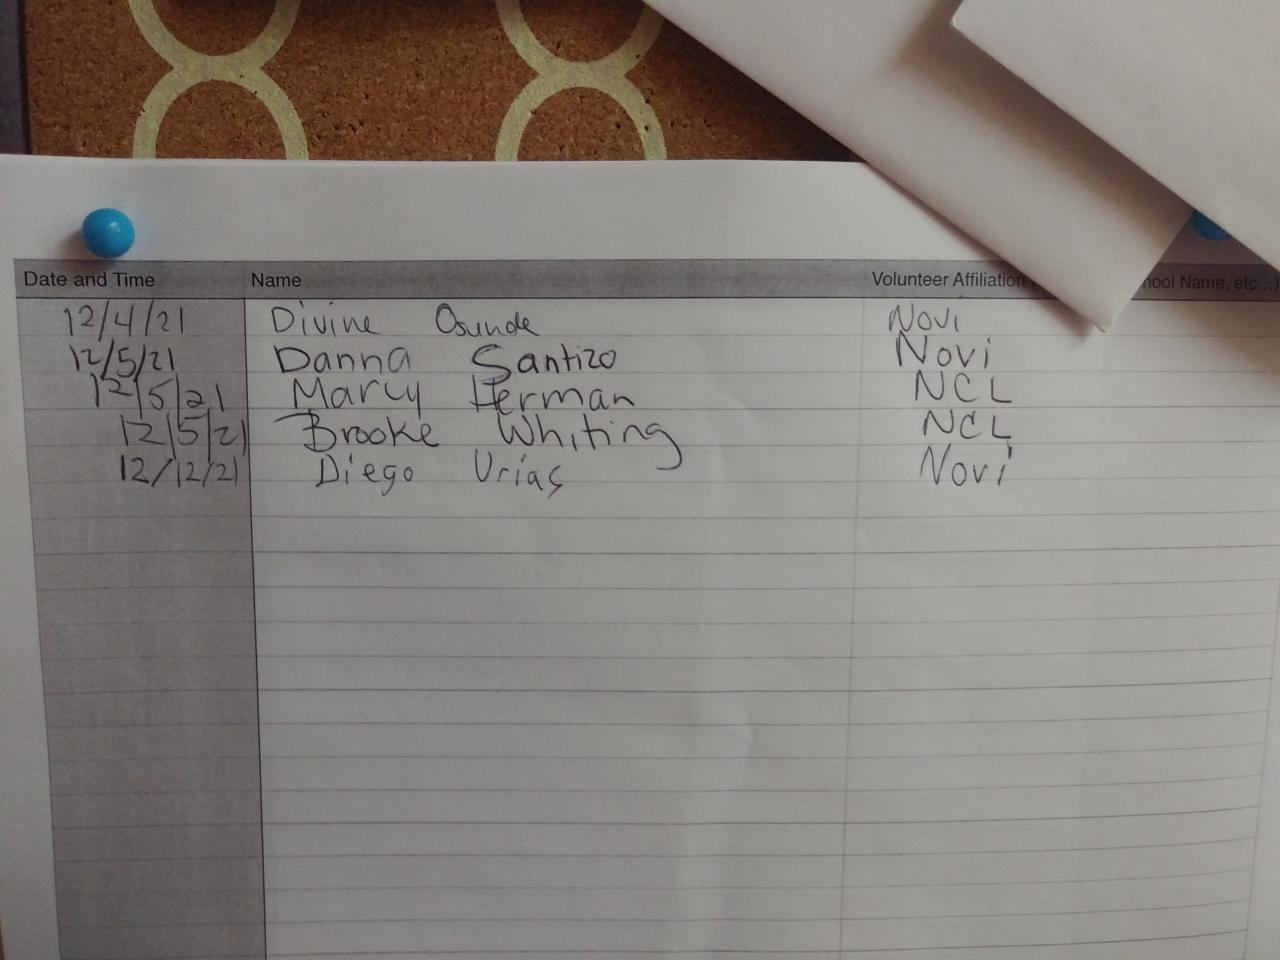 Date and Time Name Volunteer Affiliation Name, etc...)
12/4/21 Divine Osunde Novi
12/5/21 Danna Santizo Novi
12/5/21 Marcy Herman NCL
12/5/21 Brooke Whiting NCL
12/12/21 Diego Urias Novi